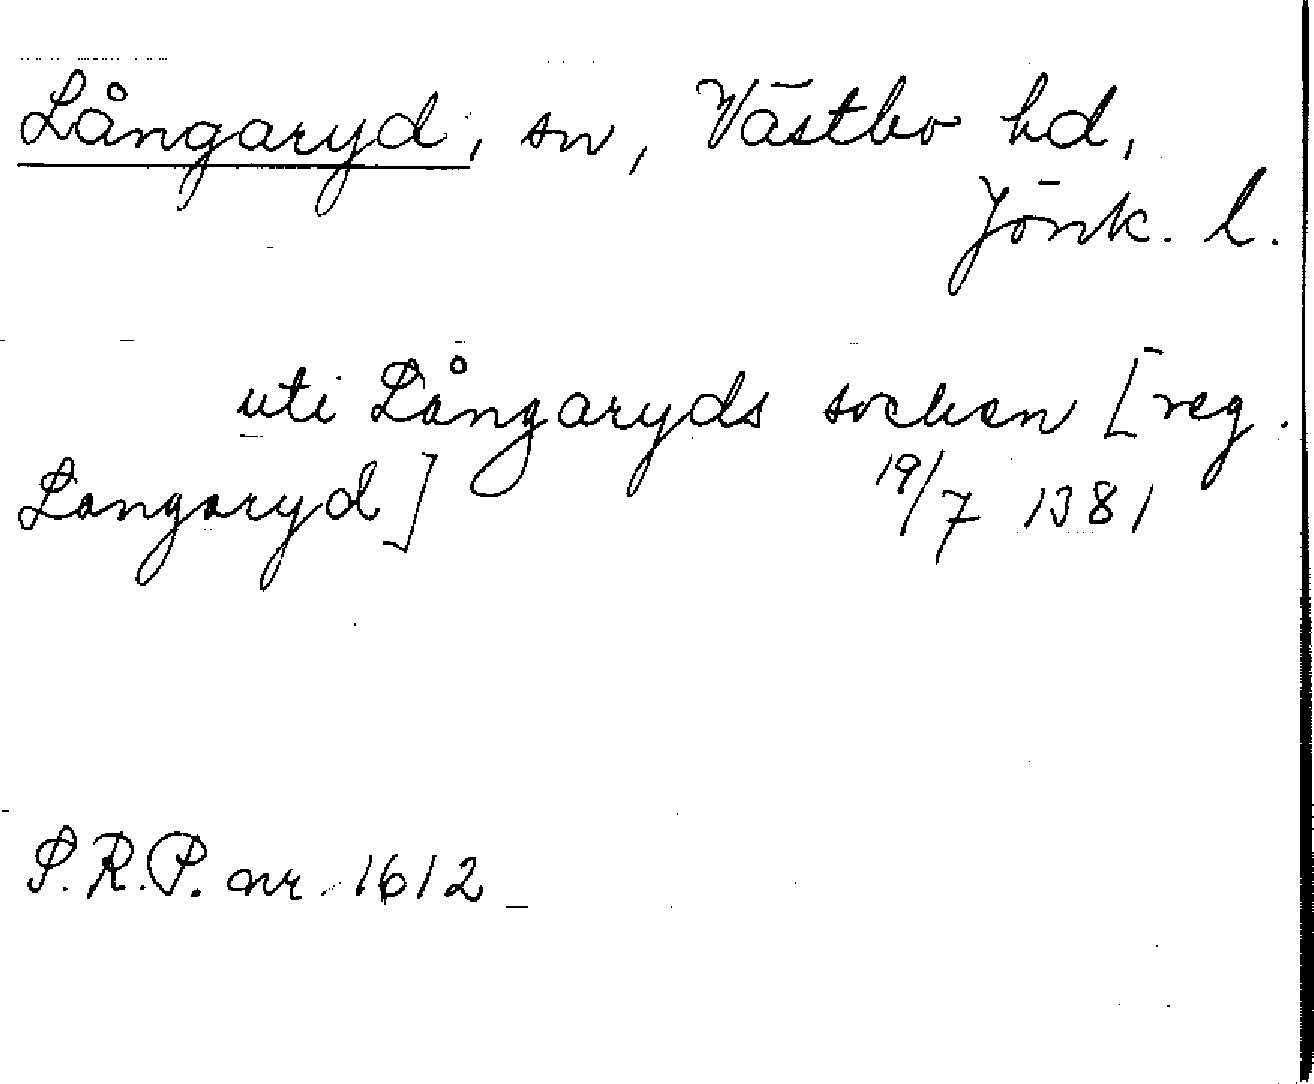 Långaryd, sn, Västbo hd,
Jönk. l.
uti Långaryds socken [reg.
Langaryd] 19/7 1381
S.R.P. nr 1612